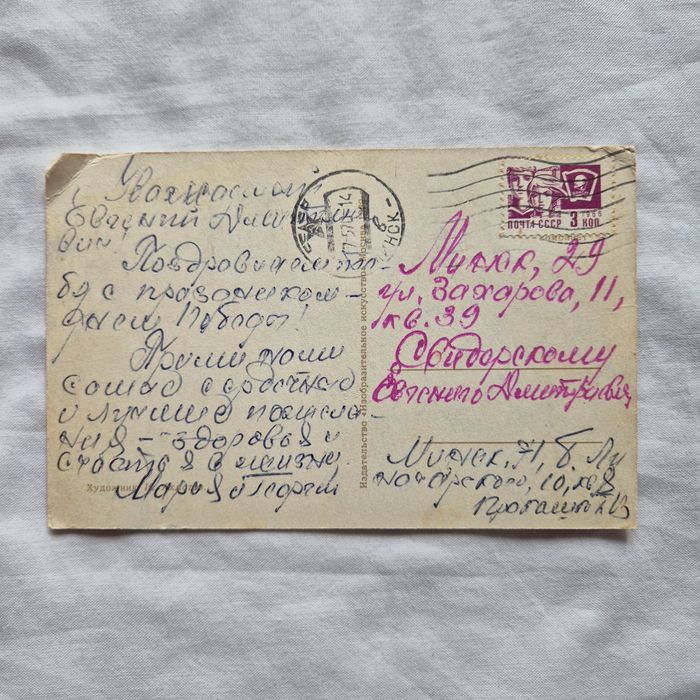 Уважаемый
Евгений Дмитрие-
вич!
Поздравляем те-
бя с праздником –
днем Победы!
Прими наши
самые сердечные
и лучшие пожела-
ния – здоровья и
счастья в жизни
Мария и Георгий
Художник
Издательство «Изобразительное искусство». Москва
1966
ПОЧТА СССР 3 КОП
Минск, 29
ул. Захарова, 11,
кв. 39
Свидерскому
Евгению Дмитриевичу
Минск, 71, б. Лу
начарского, 10, кв 8